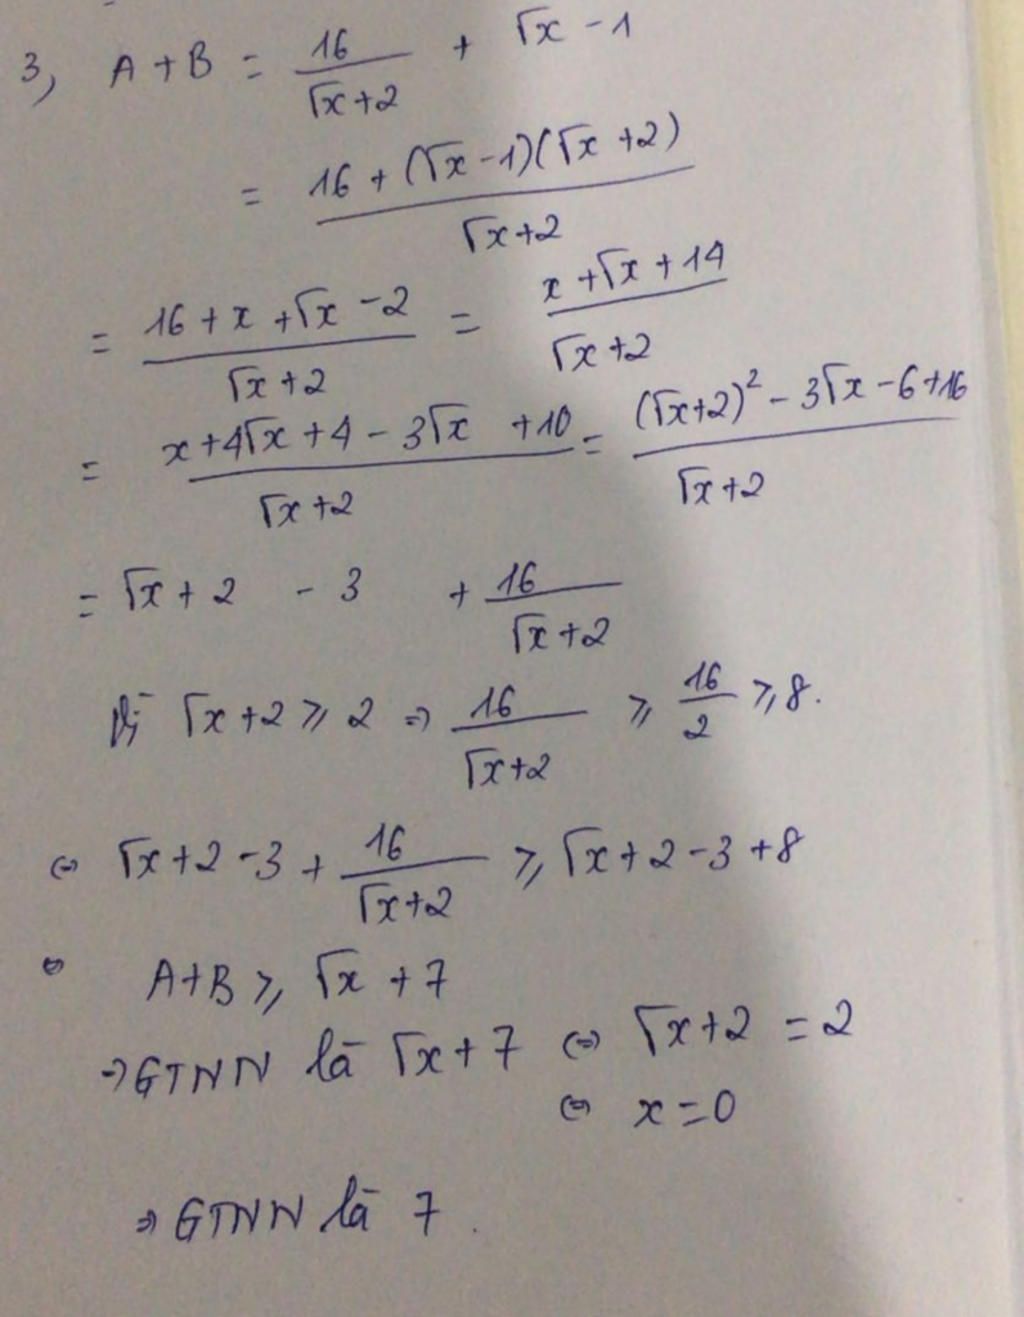 3, A + B = 16/(√x+2) + √x - 1
= (16 + (√x - 1)(√x + 2))/(√x+2)
= (16 + x + √x - 2)/(√x + 2) = (x + √x + 14)/(√x + 2)
= (x + 4√x + 4 - 3√x + 10)/(√x + 2) = ((√x+2)² - 3√x - 6 + 16)/(√x + 2)
= √x + 2 - 3 + 16/(√x + 2)
Vì √x + 2 ⩾ 2 ⇒ 16/(√x+2) ⩾ 16/2 ⩾ 8.
⇔ √x + 2 - 3 + 16/(√x+2) ⩾ √x + 2 - 3 + 8
⇔ A+B ⩾ √x + 7
→ GTNN là √x + 7 ⇔ √x + 2 = 2
⇔ x = 0
⇒ GTNN là 7.